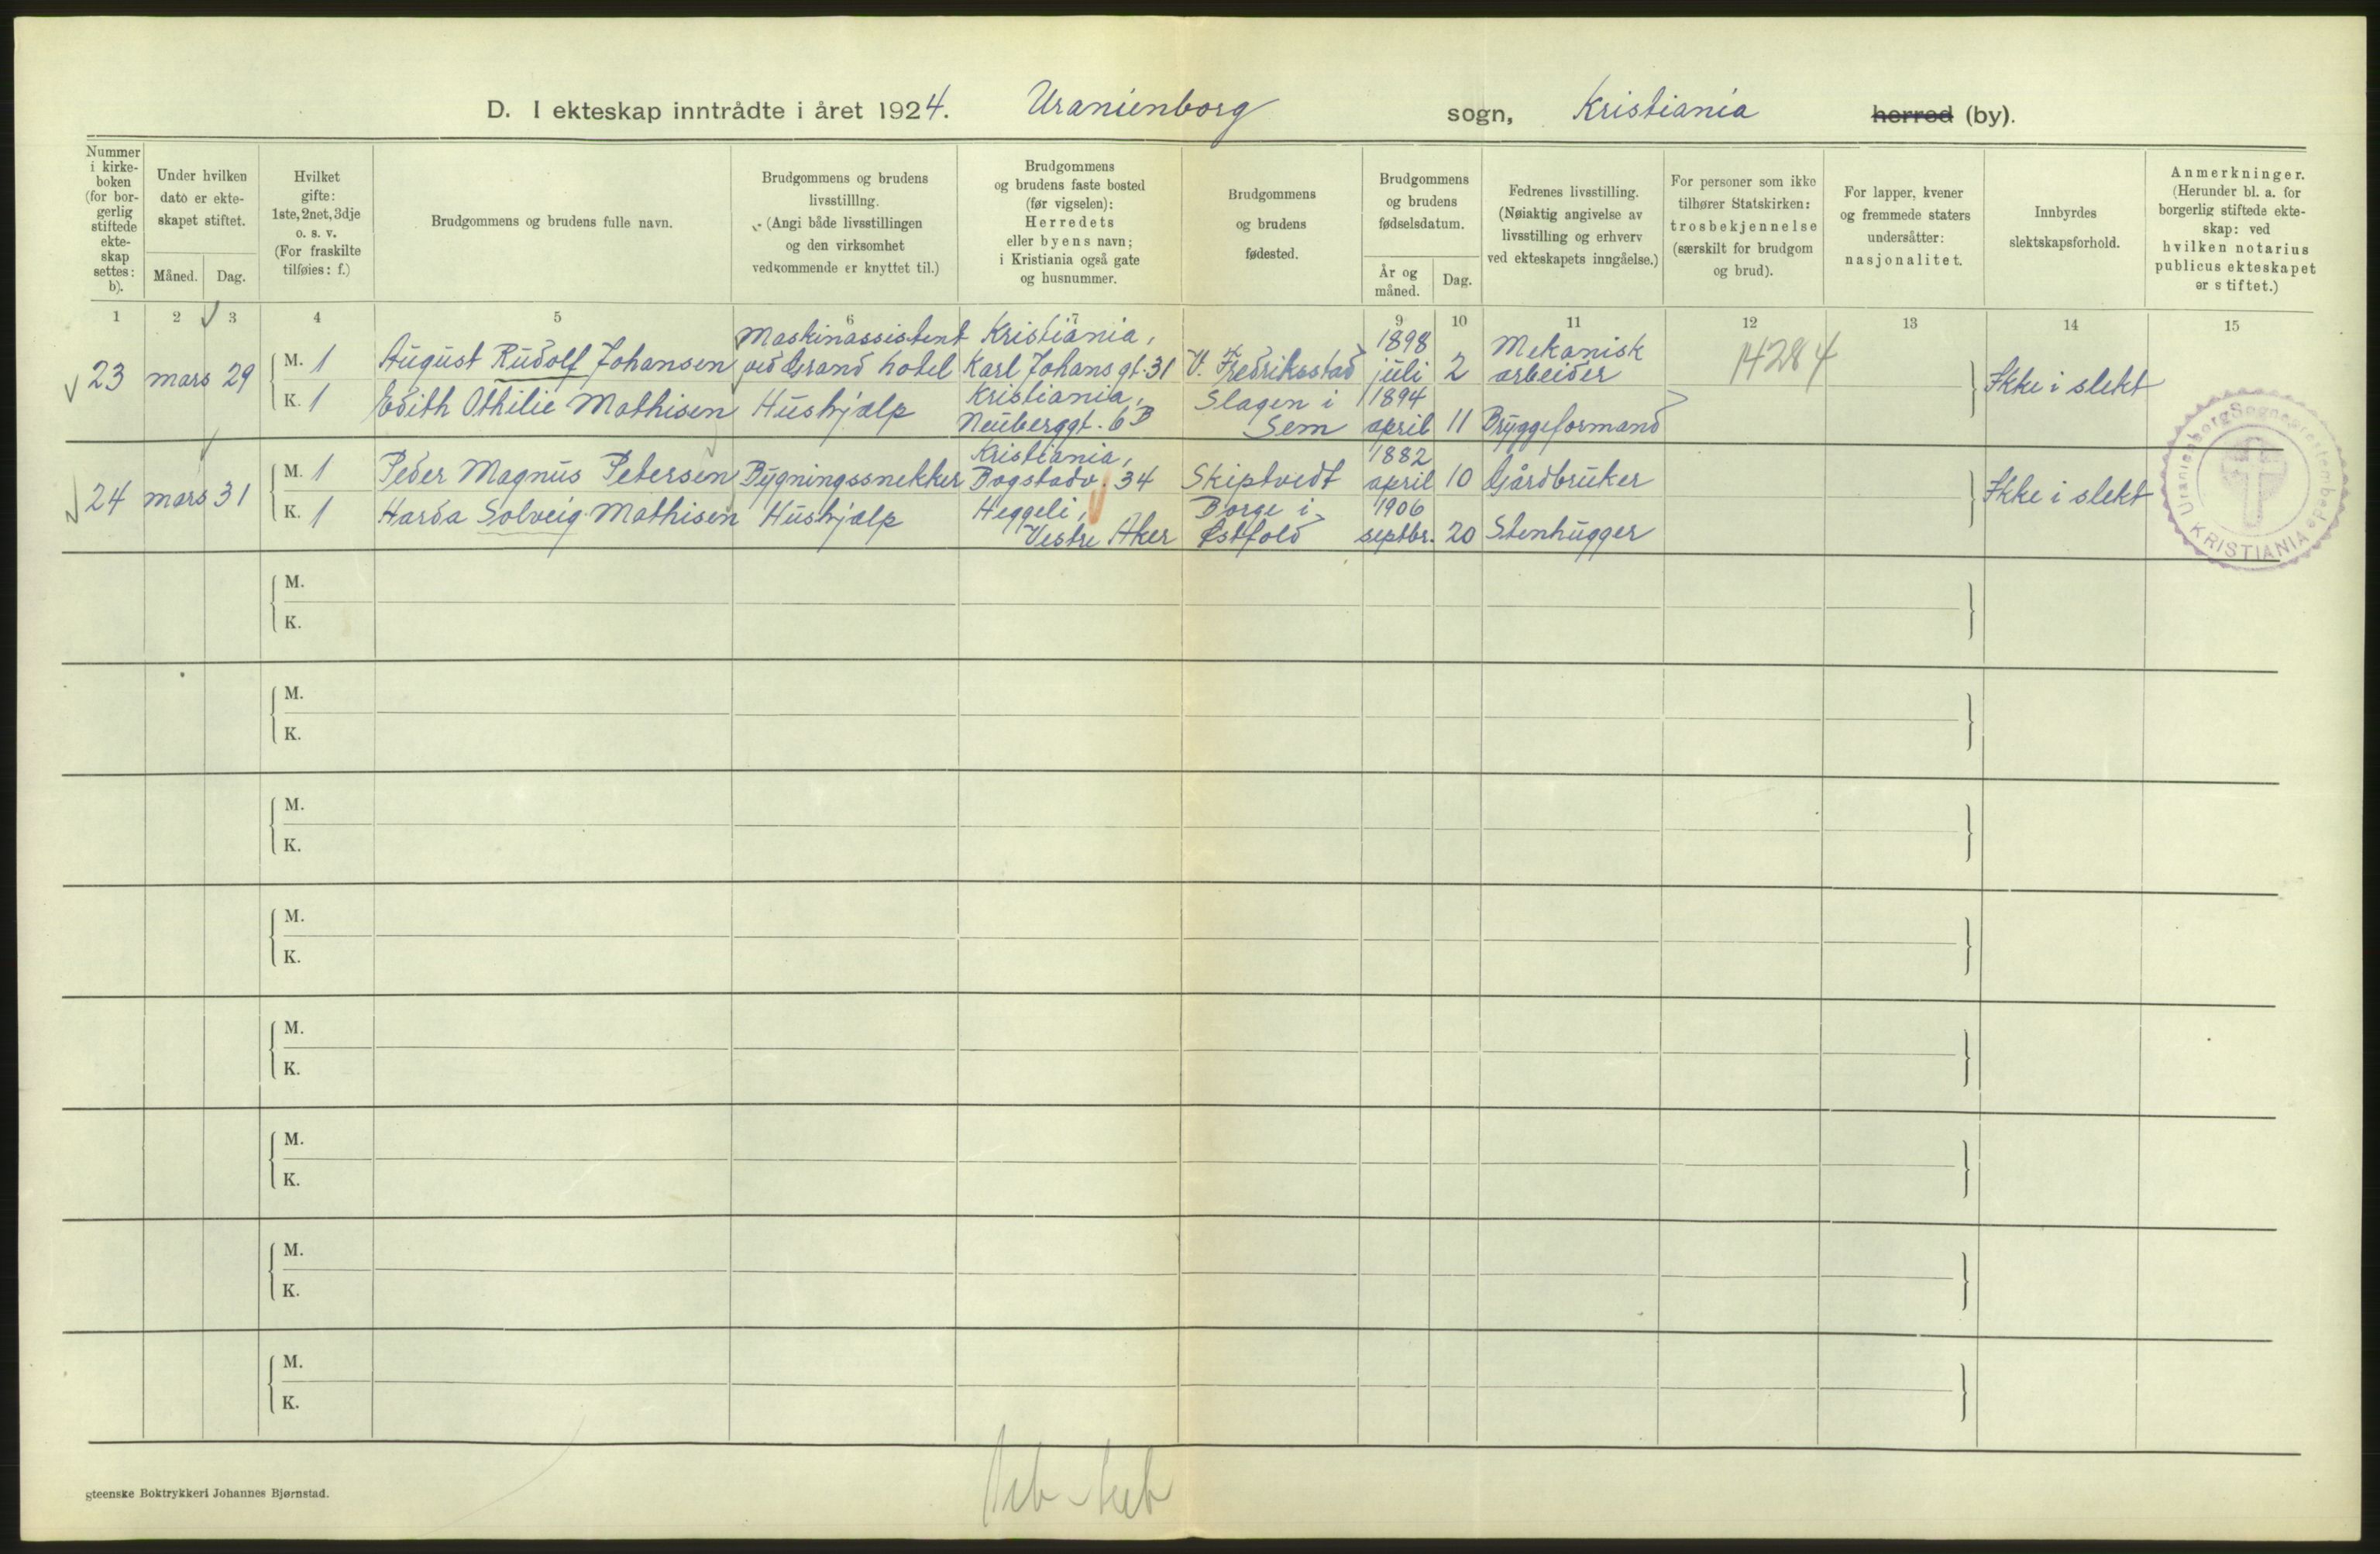 D. I ekteskap inntrådte i året 1924. Uranienborg sogn, Kristiania herred (by).
Nummer i kirke-boken (for bor-gerlig stiftede ekte-skap settes: b).
Under hvilken dato er ekte-skapet stiftet.
Måned. Dag.
Hvilket gifte: 1ste, 2net, 3dje o. s. v. (For fraskilte tilføies: f.)
Brudgommens og brudens fulle navn.
Brudgommens og brudens livsstilllng. (Angi både livsstillingen og den virksomhet vedkommende er knyttet til.)
Brudgommens og brudens faste bosted (før vigselen): Herredets eller byens navn; i Kristiania også gate og husnummer.
Brudgommens og brudens fødested.
Brudgommens og brudens fødselsdatum.
År og måned. Dag.
Fedrenes livsstilling. (Nøiaktig angivelse av livsstilling og erhverv ved ekteskapets inngåelse.)
For personer som ikke tilhører Statskirken: trosbekjennelse (særskilt for brudgom og brud).
For lapper, kvener og fremmede staters undersåtter: nasjonalitet.
Innbyrdes slektskapsforhold.
Anmerkninger. (Herunder bl. a. for borgerlig stiftede ekte-skap: ved hvilken notarius publicus ekteskapet er stiftet.)
1 2 3 4 5 6 7 9 10 11 12 13 14 15
23 mars 29
M. 1 August Rudolf Johansen Maskinassistent ved Grand hotel Kristiania, Karl Johans gt. 31 V. Fredriksstad 1898 juli 2 Mekanisk arbeider 14284
K. 1 Edith Othilie Mathisen Hushjælp Kristiania, Neuberggt. 6B Slagen i Sem 1894 april 11 Bryggeformand
Ikke i slekt
24 mars 31
M. 1 Peder Magnus Petersen Bygningssnekker Kristiania, Bogstadv. 34 Skiptvedt 1882 april 10 Gårdbruker
K. 1 Harda Solveig Mathisen Hushjælp Heggeli, Vestre Aker Borge i Østfold 1906 septbr. 20 Stenhugger
Ikke i slekt
KRISTIANIA
M.
K.
M.
K.
M.
K.
M.
K.
M.
K.
M.
K.
M.
K.
M.
K.
gteenske Boktrykkeri Johannes Bjørnstad.